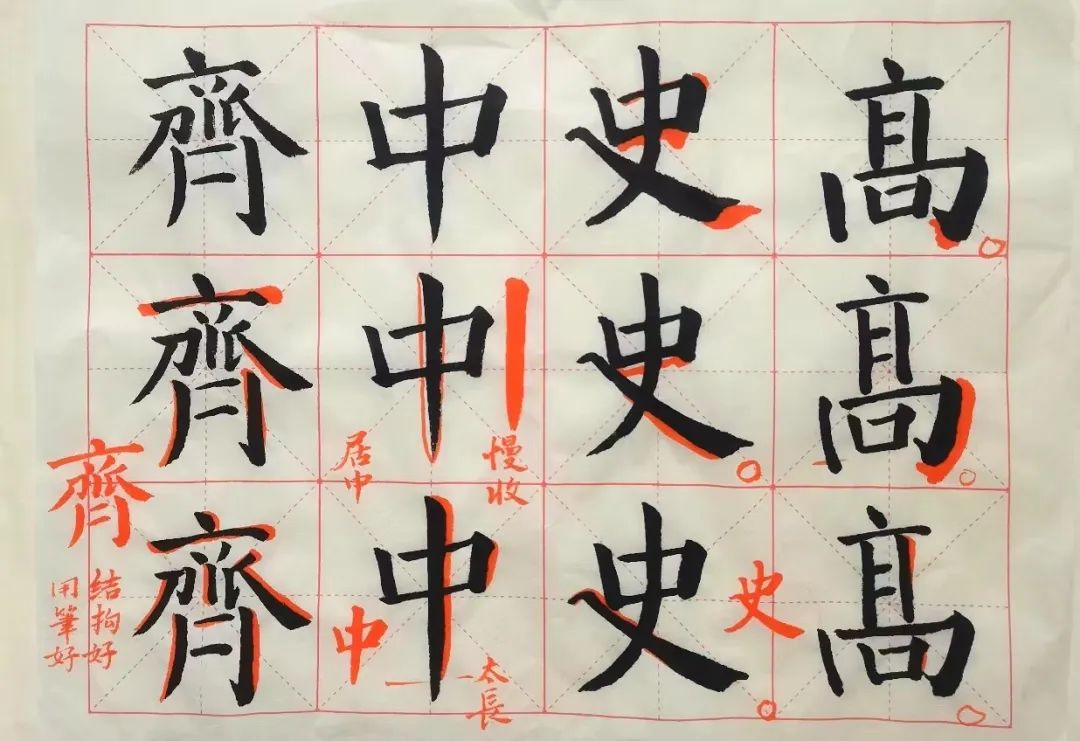 髙髙髙
史史史
史
中中中
慢收
居中
中
太長
齊齊齊
齊
结构好
用筆好